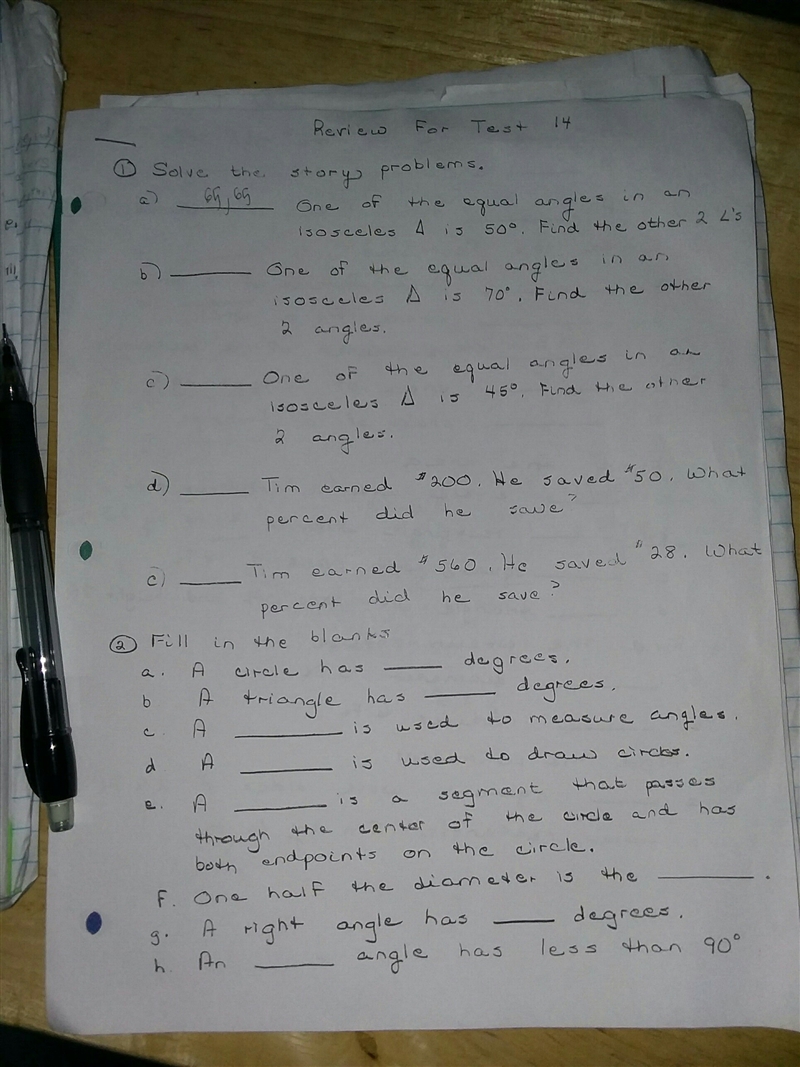 Review For Test 14
① Solve the story problems.
a) 65, 65 One of the equal angles in an
isosceles Δ is 50°. Find the other 2 ∠'s
b) ______ One of the equal angles in an
isosceles Δ is 70°. Find the other
2 angles.
c) ______ One of the equal angles in an
isosceles Δ is 45°. Find the other
2 angles.
d) ______ Tim earned $200. He saved $50. What
percent did he save?
e) ______ Tim earned $560. He saved $28. What
percent did he save?
② Fill in the blanks
a. A circle has ____ degrees.
b A triangle has ____ degrees.
c. A ______ is used to measure angles.
d A ______ is used to draw circles.
e. A ______ is a segment that passes
through the center of the circle and has
both endpoints on the circle.
f. One half the diameter is the ______.
g. A right angle has ____ degrees.
h. An ____ angle has less than 90°